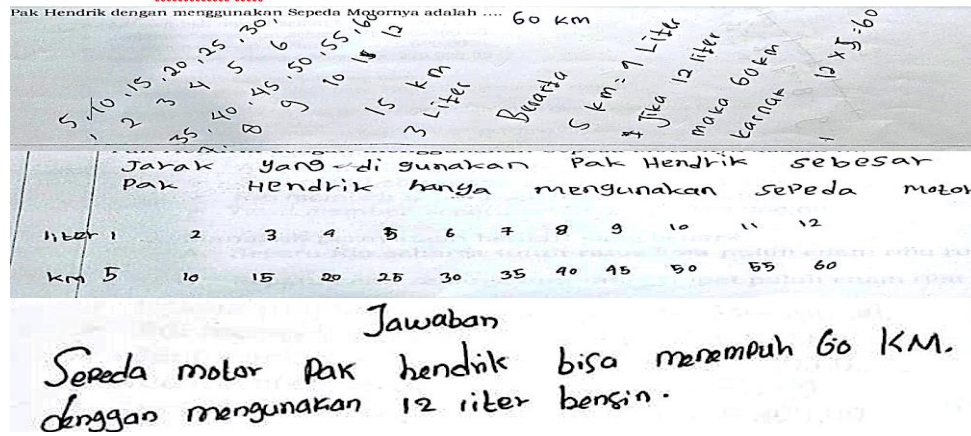 Pak Hendrik dengan menggunakan Sepeda Motornya adalah .... 60 km
5, 10, 15, 20, 25, 30,
1 2 3 4 5 6
35, 40, 45, 50, 55, 60
8 9 10 11 12
15 km
3 Liter
Berarta
5 km = 1 Liter
* Jika 12 liter
maka 60 km
karnak 12 x 5 = 60
Jarak yang di gunakan Pak Hendrik sebesar
Pak Hendrik hanya mengunakan sepeda motor
liter 1 2 3 4 5 6 7 8 9 10 11 12
km 5 10 15 20 25 30 35 40 45 50 55 60
Jawaban
Sepeda motor Pak hendrik bisa menempuh 60 KM.
denggan mengunakan 12 liter bensin.